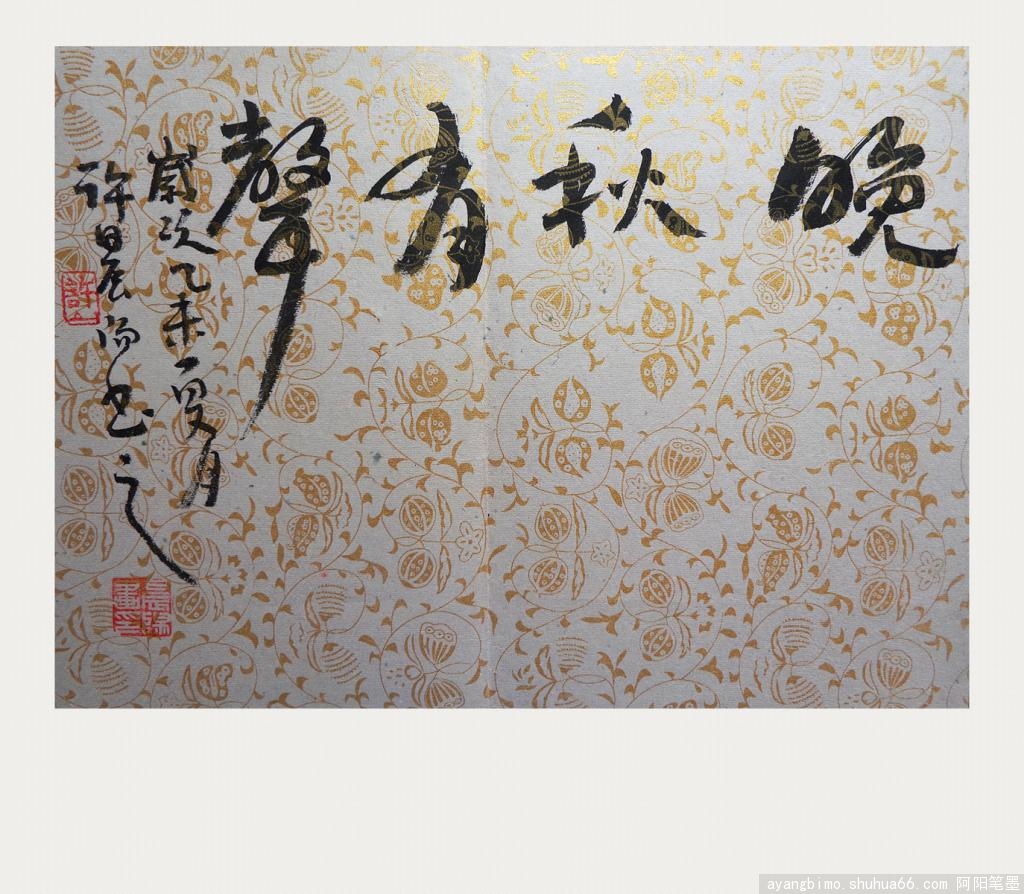 晚秋有聲
歲次乙未一叟月
許日辰尚书之
ayangbimo.shuhua66.com 阿阳笔墨